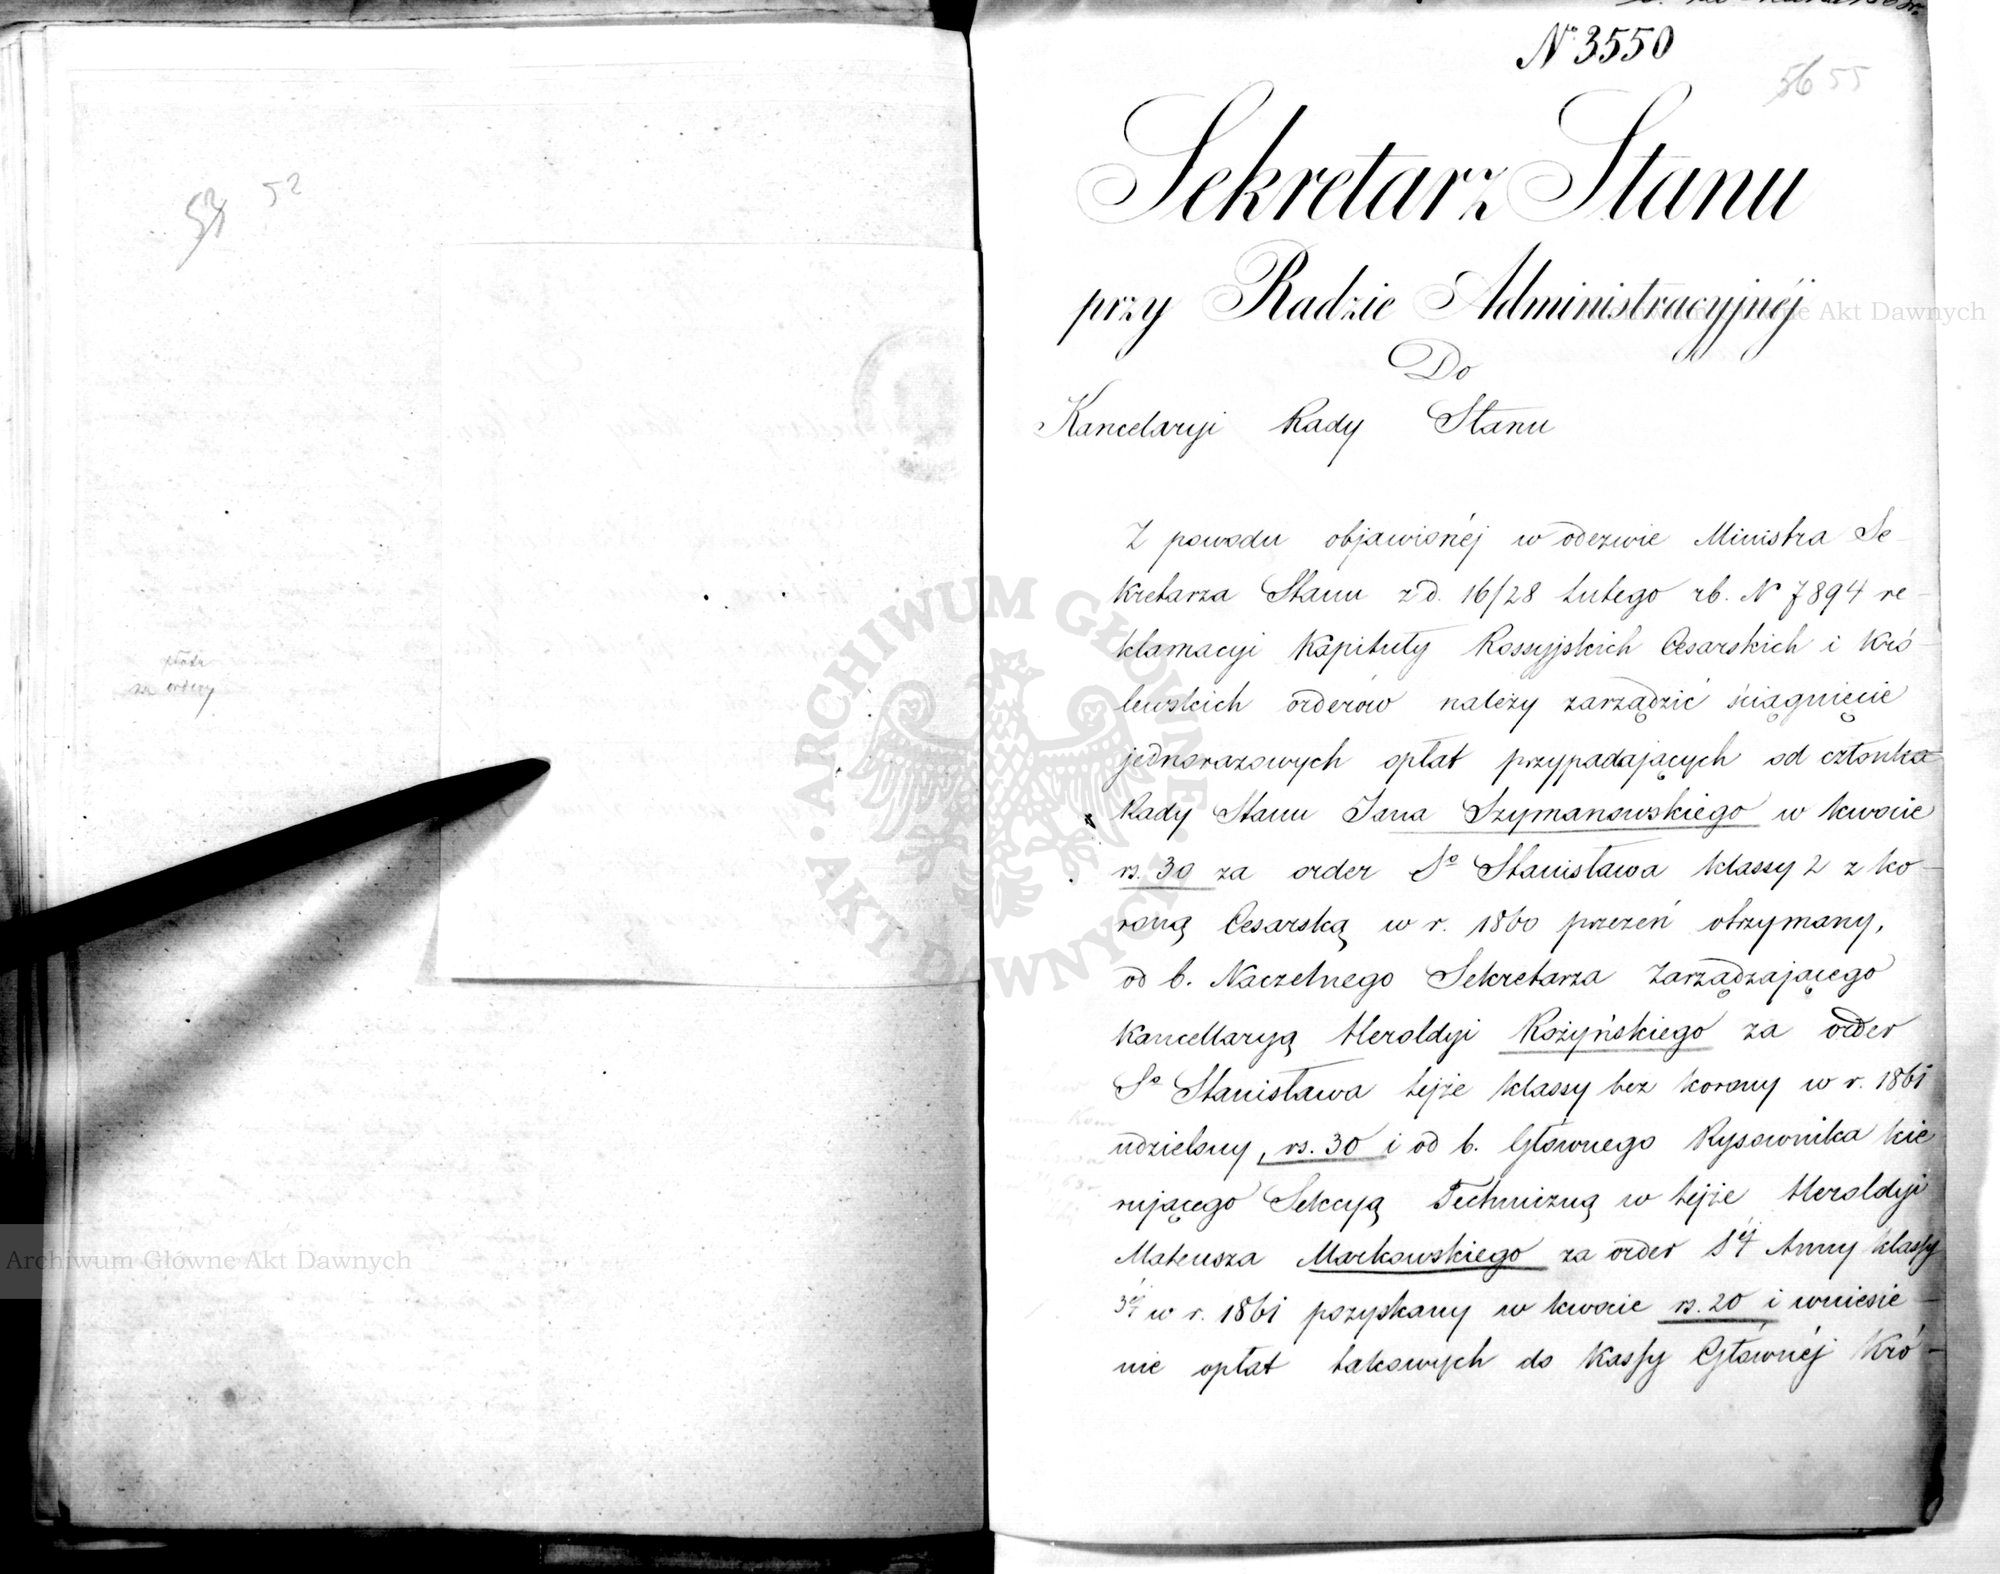 52
za ordery
Nº 3550
56 55
Sekretarz Stanu
przy Radzie Administracyjnéj
Do
Kancelaryi Rady Stanu
Z powodu objawionéj w odezwie Ministra Se-
kretarza Stanu z d. 16/28 Lutego rb. N 7894 re-
klamacyi Kapituły Rossyjskich Cesarskich i Kró-
lewskich orderów należy zarządzić ściągnięcie
jednorazowych opłat przypadających od członka
Rady Stanu Jana Szymanowskiego w kwocie
rs. 30 za order Sº Stanisława klassy 2 z ko-
roną Cesarską w r. 1860 przezeń otrzymany,
od b. Naczelnego Sekretarza Zarządzającego
Kancellaryą Heroldyi Rożyńskiego za order
Sº Stanisława tejże klassy bez korony w r. 1861
udzielony, rs. 30 i od b. Głównego Rysownika kie
rującego Sekcyą Techniczną w tejże Heroldyi
Mateusza Markowskiego za order Séj Anny klassy
3éj w r. 1861 pozyskany w kwocie rs. 20 i wniesie-
nie opłat takowych do Kassy Głównéj Kró-
Archiwum Główne Akt Dawnych
Archiwum Główne Akt Dawnych
ARCHIWUM GŁÓWNE AKT DAWNYCH